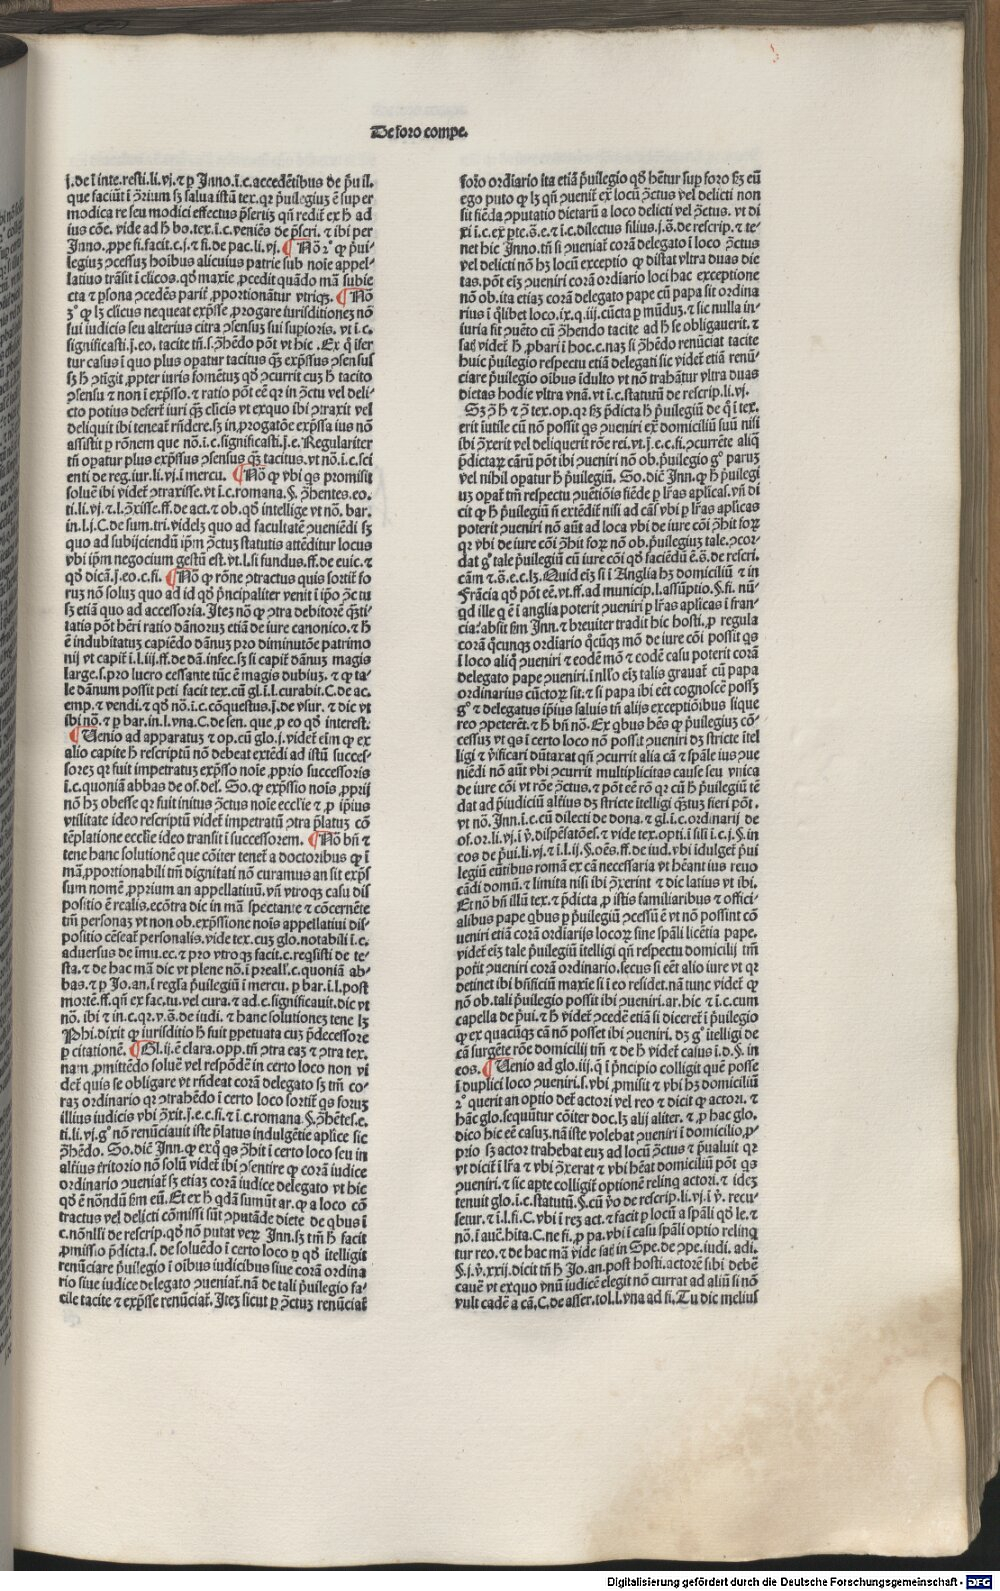 De foro compe.
j. de ī inte. resti. li. vj. ⁊ ꝑ Inno. ī. c. accedētibus de p̄uil.
que faciūt ī ꝯrium sꝫ salua istā tex. qꝛ p̄uilegiuꝫ ē super
modica re seu modici effectus p̄seriꝫ qn̄ redit̄ ex h̄ ad
ius cōe. vide ad h̄ bo. tex. ī. c. veniēs de p̄scri. ⁊ ibi per
Inno. ꝓpe fi. facit. c. j. ⁊ fi. de pac. li. vj. ¶ Nō 2º ꝙ p̄ui-
legiuꝫ ꝯcessuꝫ hoībus alicuius patrie sub noīe appel-
latiuo trāsit ī clicos. qd̄ maxīe ꝓcedit quādo mā subie
cta ⁊ ꝑsona ꝯcedēs parit̄ ꝓportionātur vtriqꝫ. ¶ Nō
3º ꝙ lꝫ clicus nequeat exp̄sse ꝓrogare iurisditionē nō
sui iudicis seu alterius citra ꝯsensuꝫ sui supioris. vt ī. c.
significasti. j. eo. tacite tn̄. s. ꝯhēdo pōt vt hic. Ex q̄ ifer
tur casus ī quo plus opatur tacitus qꝫ exp̄ssus ꝯsensus
sꝫ h̄ ꝯtigit ꝓpter iuris fomētuꝫ qd̄ ꝯcurrit cuꝫ h̄ tacito
ꝯsensu ⁊ non ī exp̄sso. ⁊ ratio pōt eē qꝛ in ꝯctu vel deli-
cto potius defert̄ iuri qꝫ clicis vt exquo ibi ꝯtraxit vel
deliquit ibi teneat̄ rn̄dere. sꝫ in ꝓrogatōe exp̄ssa ius nō
assistit ꝑ rōnem que nō. ī. c. significasti. j. e. Regulariter
tn̄ opatur plus exp̄ssus ꝯsensus qꝫ tacitus. vt nō. ī. c. sci
enti de reg. iur. li. vj. ī mercu. ¶ Nō ꝙ vbi qs promisit
soluē ibi videt̄ ꝯtraxisse. vt ī. c. romana. §. ꝯhentes. eo.
ti. li. vj. ⁊. l. ꝯxisse. ff. de act. ⁊ ob. qd̄ intellige vt nō. bar.
in. l. j. C. de sum. tri. videlꝫ quo ad facultatē ꝯueniēdi sꝫ
quo ad subijciendū ip̄m ꝯctuꝫ statutis attēditur locus
vbi ip̄m negocium gestū est. vt. l. si fundus. ff. de euic. ⁊
qd̄ dicā. j. eo. c. fi. ¶ Nō ꝙ rōne ꝯtractus quis sortit̄ fo
ruꝫ nō soluꝫ quo ad id qd̄ p̄ncipaliter venit ī ip̄o ꝯctu
sꝫ etiā quo ad accessoria. Iteꝫ nō ꝙ ꝯtra debitorē q̄ti-
latis pōt hēri ratio dānoruꝫ etiā de iure canonico. ⁊ h̄
ē indubitatuꝫ capiēdo dānuꝫ pro diminutōe patrimo
nij vt capit̄ ī. l. iij. ff. de dā. infec. sꝫ si capit̄ dānuꝫ magis
large. s. pro lucro cessante tūc ē magis dubiuꝫ. ⁊ ꝙ ta-
le dānum possit peti facit tex. cū gl. ī. l. curabit. C. de ac.
emp. ⁊ vendi. ⁊ qd̄ nō. ī. c. cōquestus. j. de vsur. ⁊ dic vt
ibi nō. ⁊ ꝑ bar. in. l. vna. C. de sen. que ꝓ eo qd̄ interest.
¶ Uenio ad apparatuꝫ ⁊ op. cū glo. j. videt̄ eīm ꝙ ex
alio capite h̄ rescriptū nō debeat extēdi ad istū succes-
soreꝫ qꝛ fuit impetratuꝫ exp̄sso noīe ꝓprio successoris
ī. c. quoniā abbas de of. del. So. ꝙ exp̄ssio nois ꝓprij
nō hꝫ obesse qꝛ fuit initus ꝯctus noīe ecclīe ⁊ ꝓ ip̄ius
vtilitate ideo rescriptū videt̄ impetratū ꝯtra p̄latuꝫ cō
tēplatione ecclīe ideo transit ī successorem. ¶ Nō bn̄ ⁊
tene hanc solutionē que cōiter tenet̄ a doctoribus ꝙ ī
mā ꝓportionabili tm̄ dignitati nō curamus an sit exp̄s
sum nomē ꝓprium an appellatiuū. vn̄ vtroqꝫ casu dis
positio ē realis. ecōtra dic in mā spectante ⁊ cōcernēte
tm̄ personaꝫ vt non ob. exp̄ssione nois appellatiui dis-
positio cēseat̄ personalis. vide tex. cuꝫ glo. notabili ī. c.
aduersus de īmu. ec. ⁊ pro vtroqꝫ facit. c. reqsisti de te-
sta. ⁊ de hac mā dic vt plene nō. ī preall. c. quoniā ab-
bas. ⁊ ꝑ Jo. an. ī regla p̄uilegiū ī mercu. ꝑ bar. ī. l. post
mortē. ff. qn̄ ex fac. tu. vel cura. ⁊ ad. c. significauit. dic vt
nō. ibi ⁊ in. c. qꝛ. v. s. de iudi. ⁊ hanc solutioneꝫ tene lꝫ
Phi. dixit ꝙ iurisditio h̄ fuit ꝑpetuata cuꝫ p̄decessore
ꝑ citationē. ¶ Gl. ij. ē clara. opp. tn̄ ꝯtra eaꝫ ⁊ ꝯtra tex.
nam ꝓmittēdo soluē vel respōdē in certo loco non vi
det̄ quis se obligare vt rn̄deat corā delegato sꝫ tm̄ co-
raꝫ ordinario qꝛ ꝯtrahēdo ī certo loco sortit̄ qs foruꝫ
illius iudicis vbi ꝯxit. j. e. c. fi. ⁊ ī. c. romana. §. ꝯhētes. e.
ti. li. vj. gº nō renūciauit iste p̄latus indulgētie aplice sic
ꝯhēdo. So. dic̄ Inn. ꝙ exq̄ qs ꝯhit ī certo loco seu in
alteriꝰ t̄ritorio nō solū videt̄ ibi ꝯsentire ꝙ corā iudice
ordinario ꝯueniat̄ sꝫ etiaꝫ corā iudice delegato vt hic
qd̄ ē nōndū fm̄ eū. Et ex h̄ qdā sumūt ar. ꝙ a loco cō
tractus vel delicti cōmissi sūt ꝯputāde diete de qbus ī
c. nōnlli de rescrip. qd̄ nō putat veꝝ Inn. sꝫ tm̄ h̄ facit
ꝓmissio p̄dicta. s. de soluēdo ī certo loco ꝑ qd̄ ītelligit̄
renūciare p̄uilegio ī oibus iudicibus siue corā ordina
rio siue iudice delegato ꝯueniat̄. nā de tali p̄uilegio fa-
cile tacite ⁊ exp̄sse renūciat̄. Iteꝫ sicut ꝑ ꝯctuꝫ renūciat̄
foro ordiario ita etiā p̄uilegio qd̄ hētur sup foro sꝫ eū
ego puto ꝙ lꝫ qn̄ ꝯuenit̄ ex locū ꝯctus vel delicti non
sit fiēda ꝯputatio dietarū a loco delicti vel ꝯctus. vt di
xi ī. c. ex ꝑte. s. e. ⁊ ī. c. dilectus filius. j. s. de rescrip. ⁊ te-
net hic Inno. tn̄ si ꝯueniat̄ corā delegato ī loco ꝯctus
vel delicti nō hꝫ locū exceptio ꝙ distat vltra duas die
tas. pōt eīꝫ ꝯueniri corā ordinario loci hac exceptione
nō ob. ita etiaꝫ corā delegato pape cū papa sit ordina
rius ī q̄libet loco. ix. q. iij. cūcta ꝑ mūduꝫ. ⁊ sic nulla in-
iuria fit ꝯuēto cū ꝯhendo tacite ad h̄ se obligauerit. ⁊
satꝫ videt̄ h̄ ꝓbari ī hoc. c. naꝫ si ꝯhēdo renūciat tacite
huic p̄uilegio respectu etiā delegati sic videt̄ etiā renū-
ciare p̄uilegio oībus īdulto vt nō trahātur vltra duas
dietas hodie vltra vnā. vt ī. c. statutū de rescrip. li. vj.
Sꝫ ꝯ h̄ ⁊ ꝯ tex. op. qꝛ sꝫ p̄dicta h̄ p̄uilegiū de q̄ ī tex.
erit iutile cū nō possit qs ꝯueniri ex domiciliū suū nisi
ibi ꝯxerit vel deliquerit rōe rei. vt. j. e. c. fi. ꝯcurrēte aliq̄
p̄dictaꝝ cārū pōt ibi ꝯueniri nō ob. p̄uilegio gº paruꝫ
vel nihil opatur h̄ p̄uilegiū. So. dic̄ Inn. ꝙ h̄ p̄uilegi
uꝫ opat̄ tm̄ respectu ꝯuētiōis fiēde ꝑ lr̄as aplicas. vn̄ di
cit ꝙ h̄ p̄uilegiū n̄ extēdit̄ nisi ad cās vbi ꝑ lr̄as aplicas
poterit ꝯueniri nō aūt ad loca vbi de iure cōi ꝯhit foꝝ
qꝛ vbi de iure cōi ꝯhit foꝝ nō ob. p̄uilegiuꝫ tale. ꝯcor-
dat gº tale p̄uilegiū cū iure cōi qd̄ faciēdū ē. s. de rescri.
cām ⁊. s. e. c. lꝫ. Quid eiꝫ si ī Anglia hꝫ domiciliū ⁊ in
Frācia qd̄ pōt eē. vt. ff. ad municip. l. assūptio. §. fi. nū-
qd ille q ē ī anglia poterit ꝯueniri ꝑ lr̄as aplicas ī fran-
cia: absit fm̄ Inn. ⁊ breuiter tradit hic hosti. ꝓ regula
corā q̄cunqꝫ ordiario q̄cūqꝫ mō de iure cōi possit qs
ī loco aliq̄ ꝯueniri ⁊ eodē mō ⁊ codē casu poterit corā
delegato pape ꝯueniri. ī nllo eiꝫ talis grauat̄ cū papa
ordinarius cūctoꝝ sit. ⁊ si papa ibi eēt cognoscē possꝫ
gº ⁊ delegatus ip̄ius saluis tn̄ alijs exceptiōibus sique
reo ꝯpeterēt. ⁊ h̄ bn̄ nō. Ex qbus hēs ꝙ p̄uilegiuꝫ cō-
cessuꝫ vt qs ī certo loco nō possit ꝯueniri dꝫ stricte ītel
ligi ⁊ v̄ificari dūtaxat qn̄ ꝯcurrit alia cā ⁊ sp̄ale ius ꝯue
niēdi nō aūt vbi ꝯcurrit multiplicitas cause seu vnica
de iure cōi vt rōe ꝯctus. ⁊ pōt eē rō qꝛ cū h̄ p̄uilegiū tē
dat ad p̄iudiciū alteriꝰ dꝫ stricte ītelligi q̄tuꝫ fieri pōt.
vt nō. Inn. ī. c. cū dilecti de dona. ⁊ gl. ī. c. ordinarij de
of. or. li. vj. ī v̄. dispēsatōes. ⁊ vide tex. opti. ī sili ī. c. j. §. in
eos de p̄ui. li. vj. ⁊ ī. l. ij. §. oēs. ff. de iud. vbi īdulget̄ p̄ui
legiū eūtibus romā ex cā necessaria vt hēant ius reuo
cādi domū. ⁊ limita nisi ibi ꝯxerint ⁊ dic latius vt ibi.
Et nō bn̄ illū tex. ⁊ p̄dicta ꝓ istis familiaribus ⁊ offici-
alibus pape qbus ꝑ p̄uilegiū ꝯcessū ē vt nō possint cō
ueniri etiā corā ordiarijs locoꝝ sine sp̄ali licētia pape.
videt̄ eiꝫ tale p̄uilegiū itelligi qn̄ respectu domicilij tm̄
pot̄it ꝯueniri corā ordinario. secus si eēt alio iure vt qꝛ
detinet ibi bn̄ficiū maxīe si ī eo residet. nā tunc videt̄ ꝙ
nō ob. tali p̄uilegio possit ibi ꝯueniri. ar. hic ⁊ ī. c. cum
capella de p̄ui. ⁊ h̄ videt̄ ꝯcedē etiā si diceret̄ ī p̄uilegio
ꝙ ex quacūqꝫ cā nō posset ibi ꝯueniri. dꝫ gº itelligi de
cā surgēte rōe domicilij tm̄ ⁊ de h̄ videt̄ casus ī. d. §. in
eos. ¶ Uenio ad glo. iij. q̄ ī p̄ncipio colligit quē posse
ī duplici loco ꝯueniri. s. vbi ꝓmisit ⁊ vbi hꝫ domiciliū
2º querit an optio det̄ actori vel reo ⁊ dicit ꝙ actori. ⁊
hāc glo. sequūtur cōiter doc. lꝫ alij aliter. ⁊ ꝓ hac glo.
dico hic eē casuꝫ. nā iste volebat ꝯueniri ī domicilio ꝓ-
prio sꝫ actor trahebat euꝫ ad locū ꝯctus ⁊ p̄ualuit qꝛ
vt dicit̄ ī lr̄a ⁊ vbi ꝯxerat ⁊ vbi hēat domiciliū pōt qs
ꝯueniri. ⁊ sic apte colligit̄ optionē relinq actori. ⁊ ideꝫ
tenuit glo. ī. c. statutū. §. cū v̄o de rescrip. li. vj. ī v̄. recu-
setur. ⁊ ī. l. fi. C. vbi ī reꝫ act. ⁊ facit ꝑ locū a sp̄ali qd̄ le. ⁊
nō. ī auc̄. hita. C. ne fi. ꝓ pa. vbi ī casu sp̄ali optio relinq
tur reo. ⁊ de hac mā vide satꝫ in Spe. de ꝯpe. iudi. adi.
§. j. v̄. xxij. dicit tn̄ h̄ Jo. an. post hosti. actorē sibi debē
cauē vt exquo vnū iudicē elegit nō currat ad aliū si nō
vult cadē a cā. C. de asser. tol. l. vna ad fi. Tu dic melius
Digitalisierung gefördert durch die Deutsche Forschungsgemeinschaft - DFG